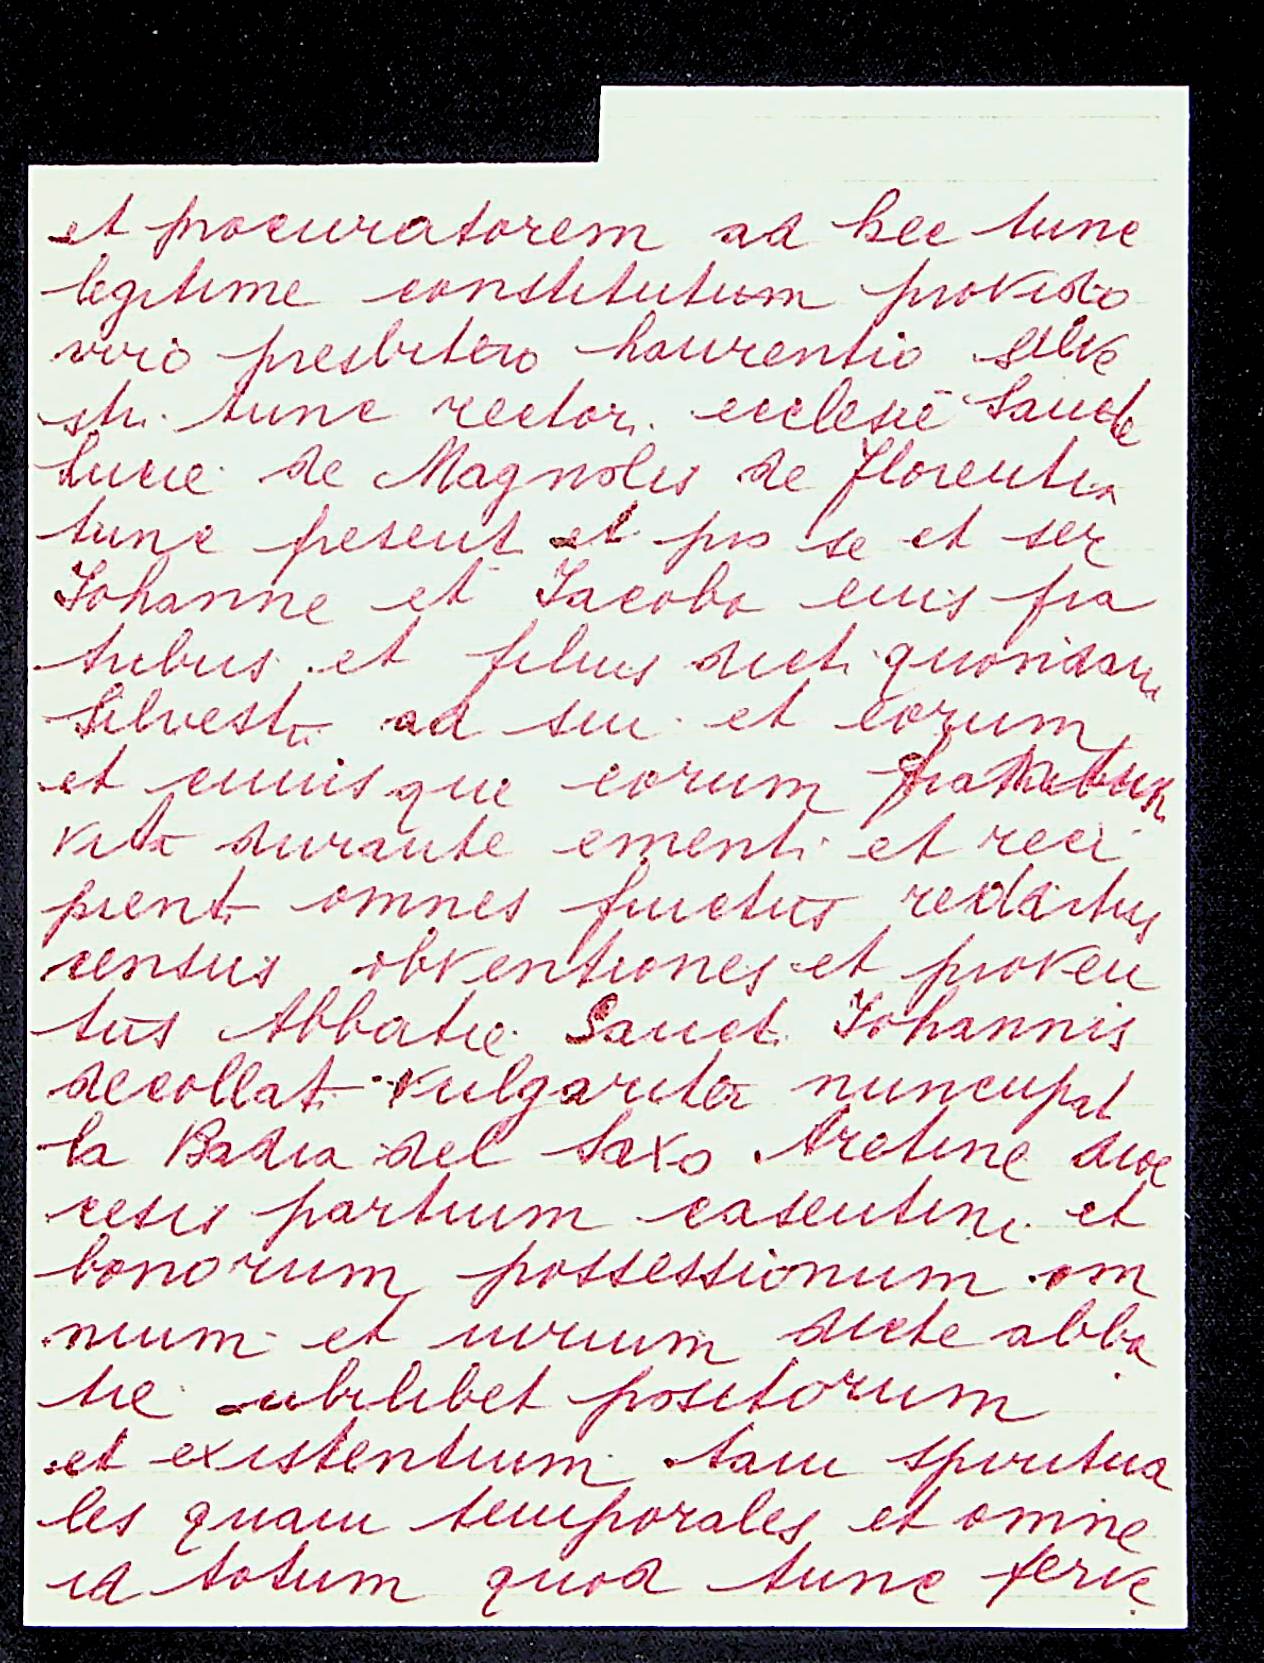 et procuratorem ad hec tunc
legitime constitutum provido
viro presbitero Laurentio Silve
stri tunc rectori ecclesie Sancte
Lucie de Magnolis de Florentia
tunc present et pro se et ser
Iohanne et Iacobo eius fra
tribus et filiis dicti quondam
Silvestri ad sui et eorum
et cuiusque eorum
vita durante ementi et reci
pienti omnes fructus redditus
census obventiones et proven
tus Abbatie Sancti Iohannis
decollati vulgariter nuncupat
la Badia del Saxo Aretine dioe
cesis partium casentini et
bonorum possessionum om
nium et iurium dicte abba
tie ubilibet positorum
et existentium tam spiritua
les quam temporales et omne
id totum quod tunc